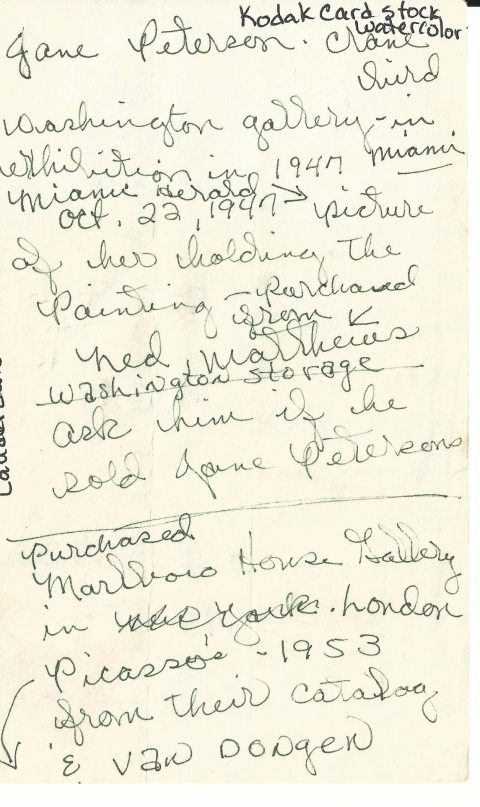 Kodak Card stock
watercolor
Jane Peterson. Crane
third
Washington gallery - in
exhibition in 1947 Miami
Miami Herald
Oct. 22, 1947 → picture
of her holding the
Painting - Purchased
from
Ned Matthews
Washington storage
ask him if he
sold Jane Petersons
Purchased
Marlboro House Gallery
in New York. London
Picasso's - 1953
from their catalog
& Van Dongen